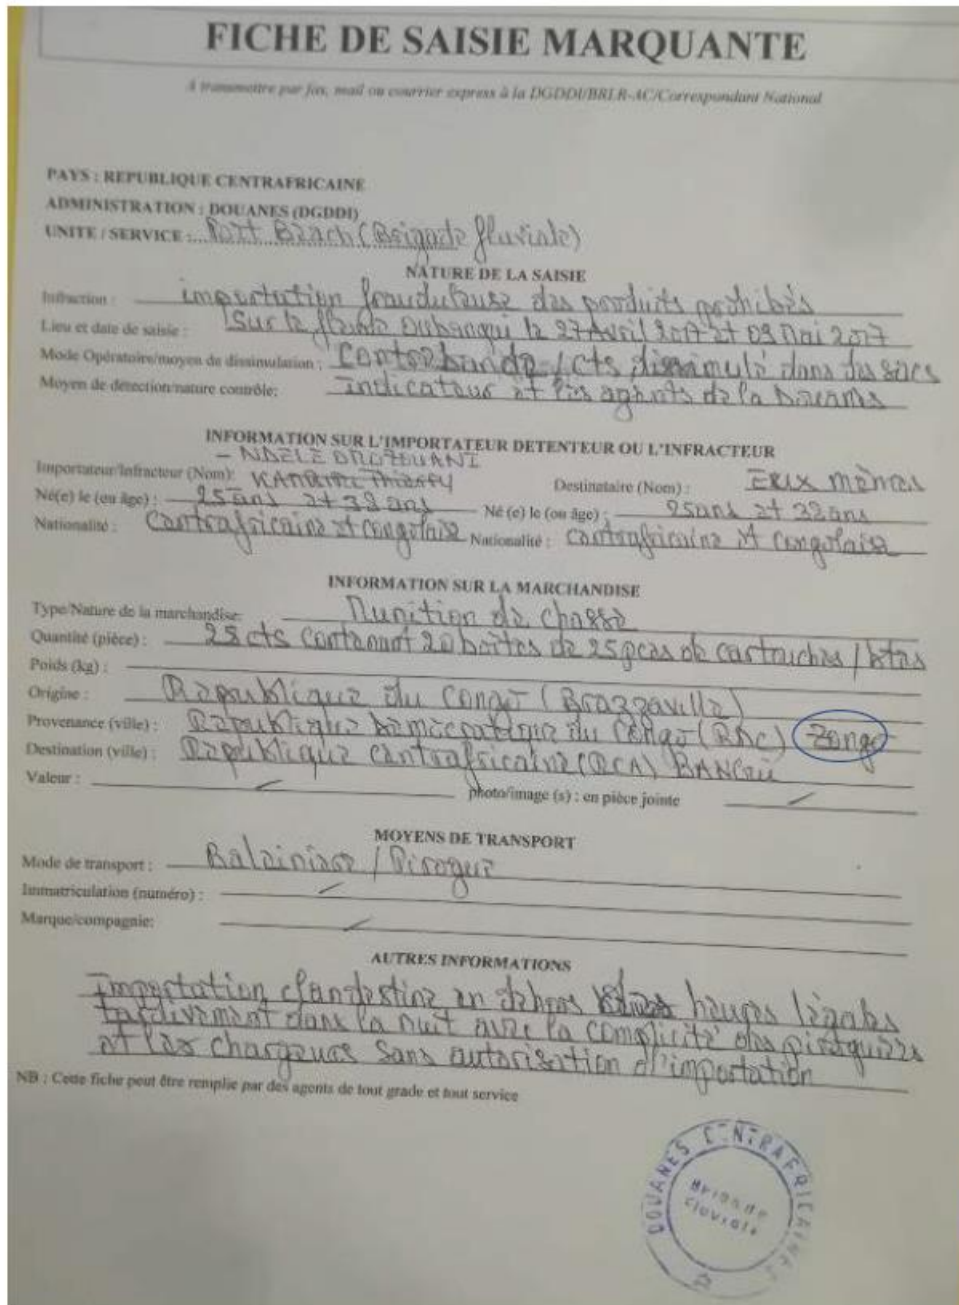 FICHE DE SAISIE MARQUANTE
A transmettre par fax, mail ou courrier express à la DGDDI/BRLR-AC/Correspondant National
PAYS : REPUBLIQUE CENTRAFRICAINE
ADMINISTRATION : DOUANES (DGDDI)
UNITE / SERVICE : Port Beach (Brigade fluviale)
NATURE DE LA SAISIE
Infraction : importation frauduleuse des produits prohibés
Lieu et date de saisie : Sur le fleuve Oubangui le 27 Avril 2017 et 09 Mai 2017
Mode Opératoire/moyen de dissimulation : Contrebande / cts dissimulé dans des sacs
Moyen de détection/nature contrôle: indicateur et les agents de la Douane
INFORMATION SUR L'IMPORTATEUR DETENTEUR OU L'INFRACTEUR
- NDELE
Importateur/Infracteur (Nom): Thierry Destinataire (Nom) : Eux mêmes
Né(e) le (ou âge) : 25 ans et 32 ans Né (e) le (ou âge) : 25 ans et 32 ans
Nationalité : Centrafricaine et congolaise Nationalité : Centrafricaine et congolaise
INFORMATION SUR LA MARCHANDISE
Type/Nature de la marchandise: Munition de chasse
Quantité (pièce) : 25 cts contenant 20 boîtes de 25 pces de cartouches /
Poids (kg) :
Origine : République du Congo (Brazzaville)
Provenance (ville) : République Démocratique du Congo (RDC) Zongo
Destination (ville) : République Centrafricaine (RCA) BANGUI
Valeur : photo/image (s) : en pièce jointe
MOYENS DE TRANSPORT
Mode de transport : Baleinière / Pirogue
Immatriculation (numéro) :
Marque/compagnie:
AUTRES INFORMATIONS
Importation clandestine en dehors heures légales
tardivement dans la nuit avec la complicité des piroguiers
et les chargeurs sans autorisation d'importation
NB : Cette fiche peut être remplie par des agents de tout grade et tout service
DOUANES CENTRAFRICAINES
Brigade
fluviale